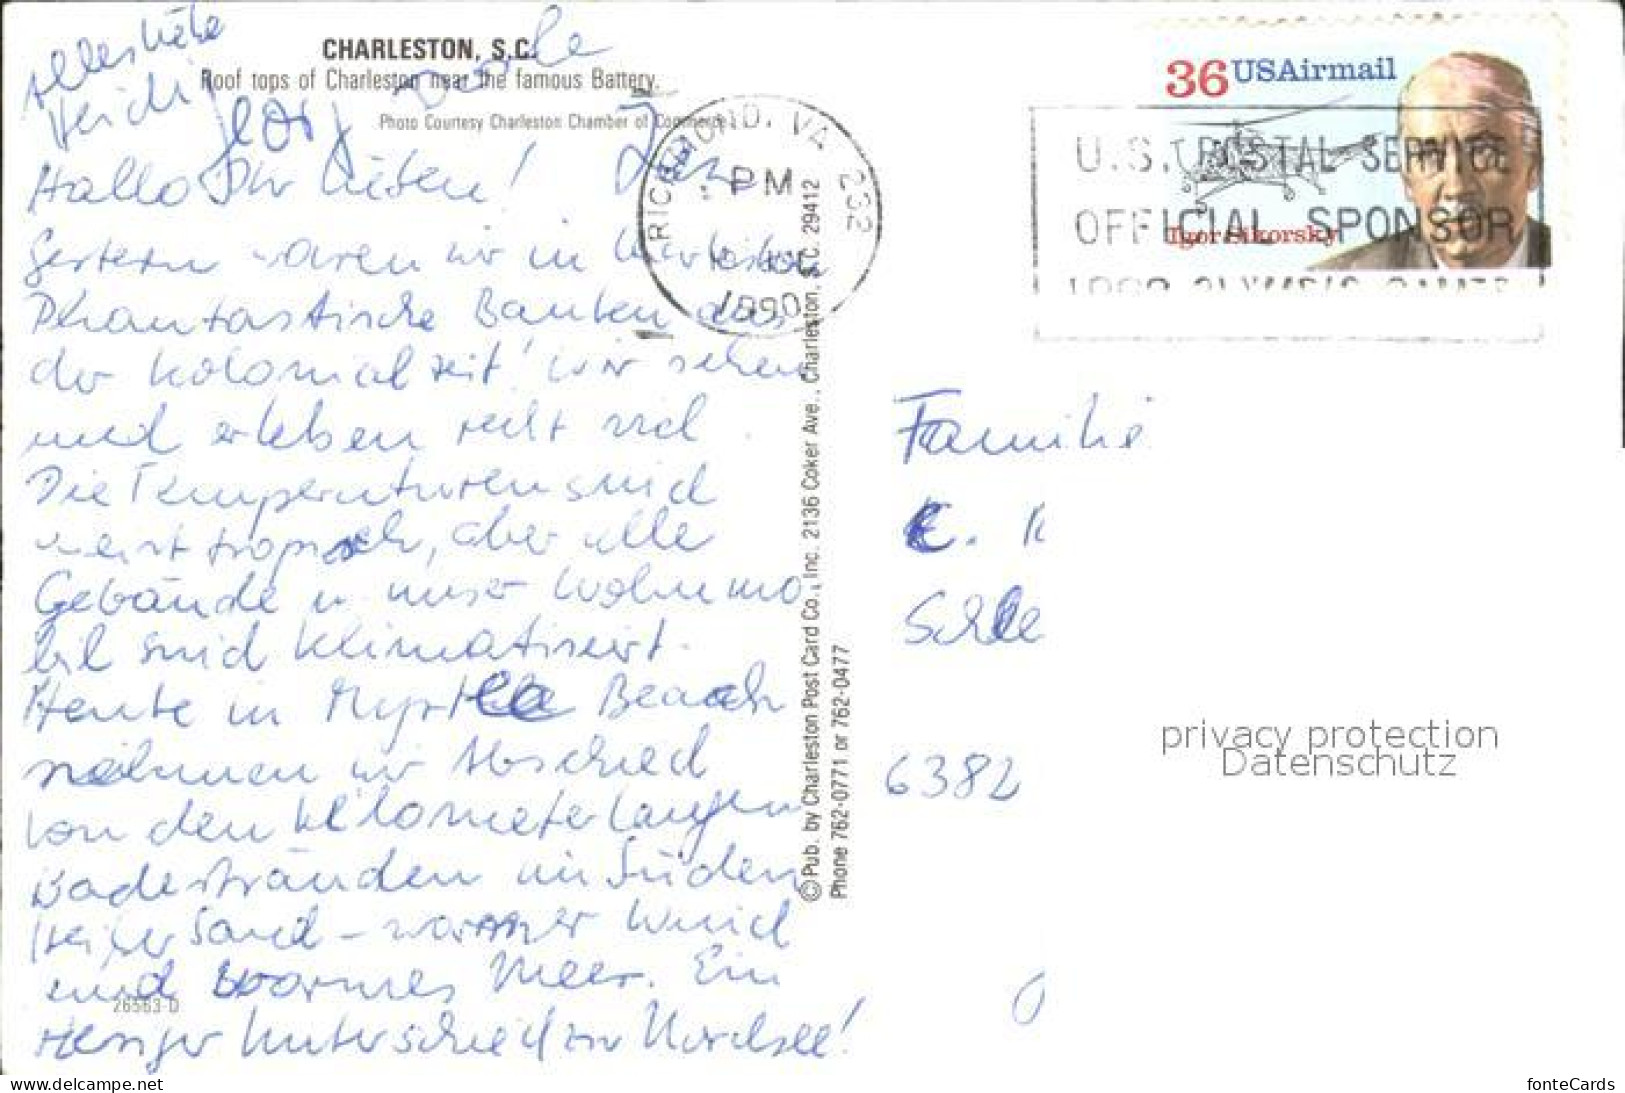 Alles Liebe
Heidi
CHARLESTON, S.C.
Roof tops of Charleston near the famous Battery.
Photo Courtesy Charleston Chamber of Commerce
Hallo Ihr Lieben!
Gestern waren wir in Charleston
Phantastische Bauten aus
der Kolonialzeit! Wir sehen
und erleben recht viel.
Die Temperaturen sind
meist tropisch, aber alle
Gebäude u. unser Wohnmo
bil sind klimatisiert.
Heute in Myrtle Beach
nehmen wir Abschied
von den kilometerlangen
Badestränden im Süden
Heißer Sand - warmer Wind
und warmes Meer. Ein
riesiger Unterschied zur Nordsee!
26563-D
© Pub. by Charleston Post Card Co., Inc. 2136 Coker Ave., Charleston, S.C. 29412
Phone 762-0771 or 762-0477
RICHMOND, VA 232
PM
1990
36 USAirmail
Igor Sikorsky
U.S. POSTAL SERVICE
OFFICIAL SPONSOR
1992 OLYMPIC GAMES
Familie
E. K
Schle
6382
privacy protection
Datenschutz
www.delcampe.net
fonteCards